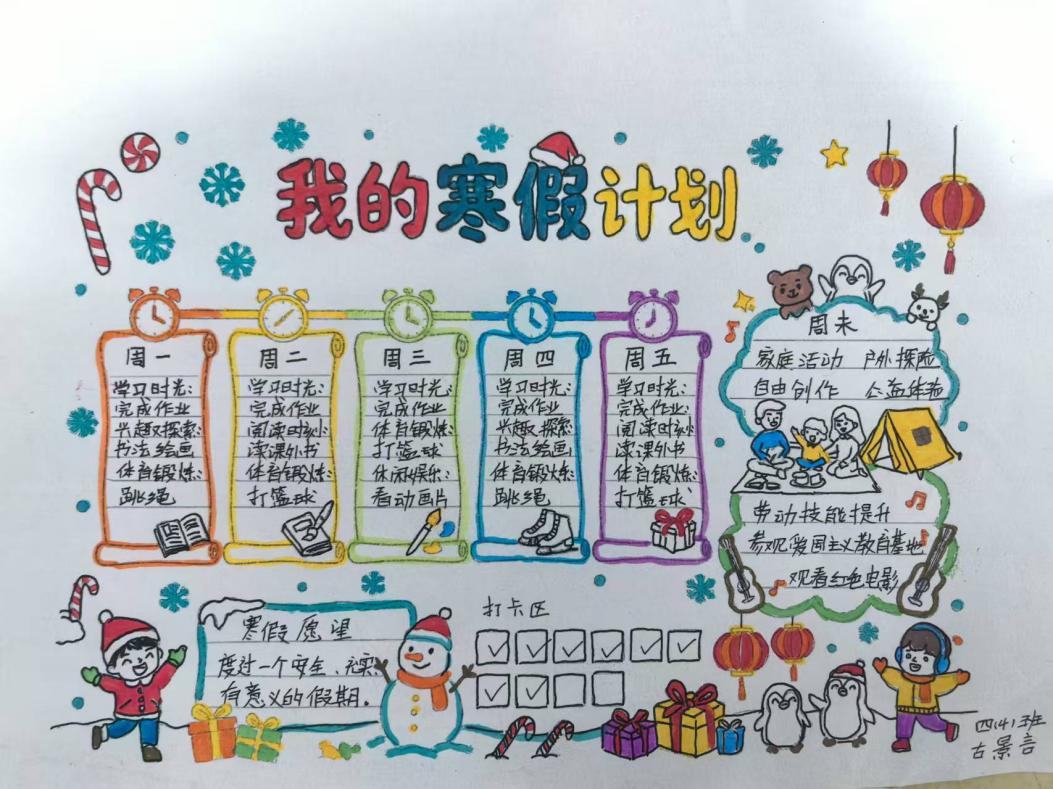 我的寒假计划
周一
学习时光:
完成作业
兴趣探索:
书法绘画
体育锻炼:
跳绳
周二
学习时光:
完成作业
阅读时刻
读课外书
体育锻炼:
打篮球
周三
学习时光:
完成作业
体育锻炼:
打篮球
休闲娱乐:
看动画片
周四
学习时光:
完成作业
兴趣探索
书法绘画
体育锻炼:
跳绳
周五
学习时光:
完成作业
阅读时刻
读课外书
体育锻炼:
打篮球
周末
家庭活动 户外探险
自由创作 公益体验
劳动技能提升
参观爱国主义教育基地
观看红色电影
寒假愿望
度过一个安全、充实、
有意义的假期。
打卡区
四(4)班
古景言